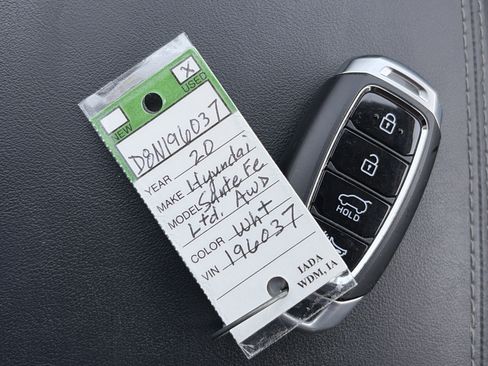 NEW
X USED
D8N196037
YEAR 20
MAKE Hyundai
MODEL Sante Fe
Ltd. AWD
COLOR Wht
VIN 196037
IADA
WDM, IA
HOLD